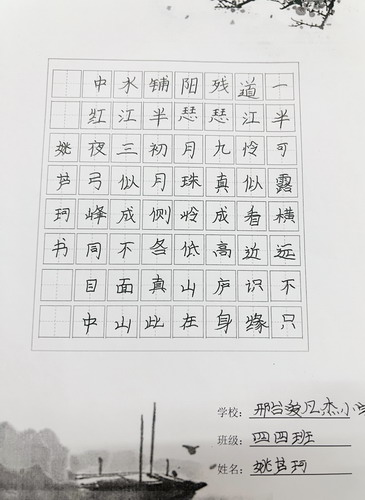 一道残阳铺水中
半江瑟瑟半江红
可怜九月初三夜
露似真珠月似弓
横看成岭侧成峰
远近高低各不同
不识庐山真面目
只缘身在此山中
姚芦珂书
学校：邢台
班级：四四班
姓名：姚芦珂